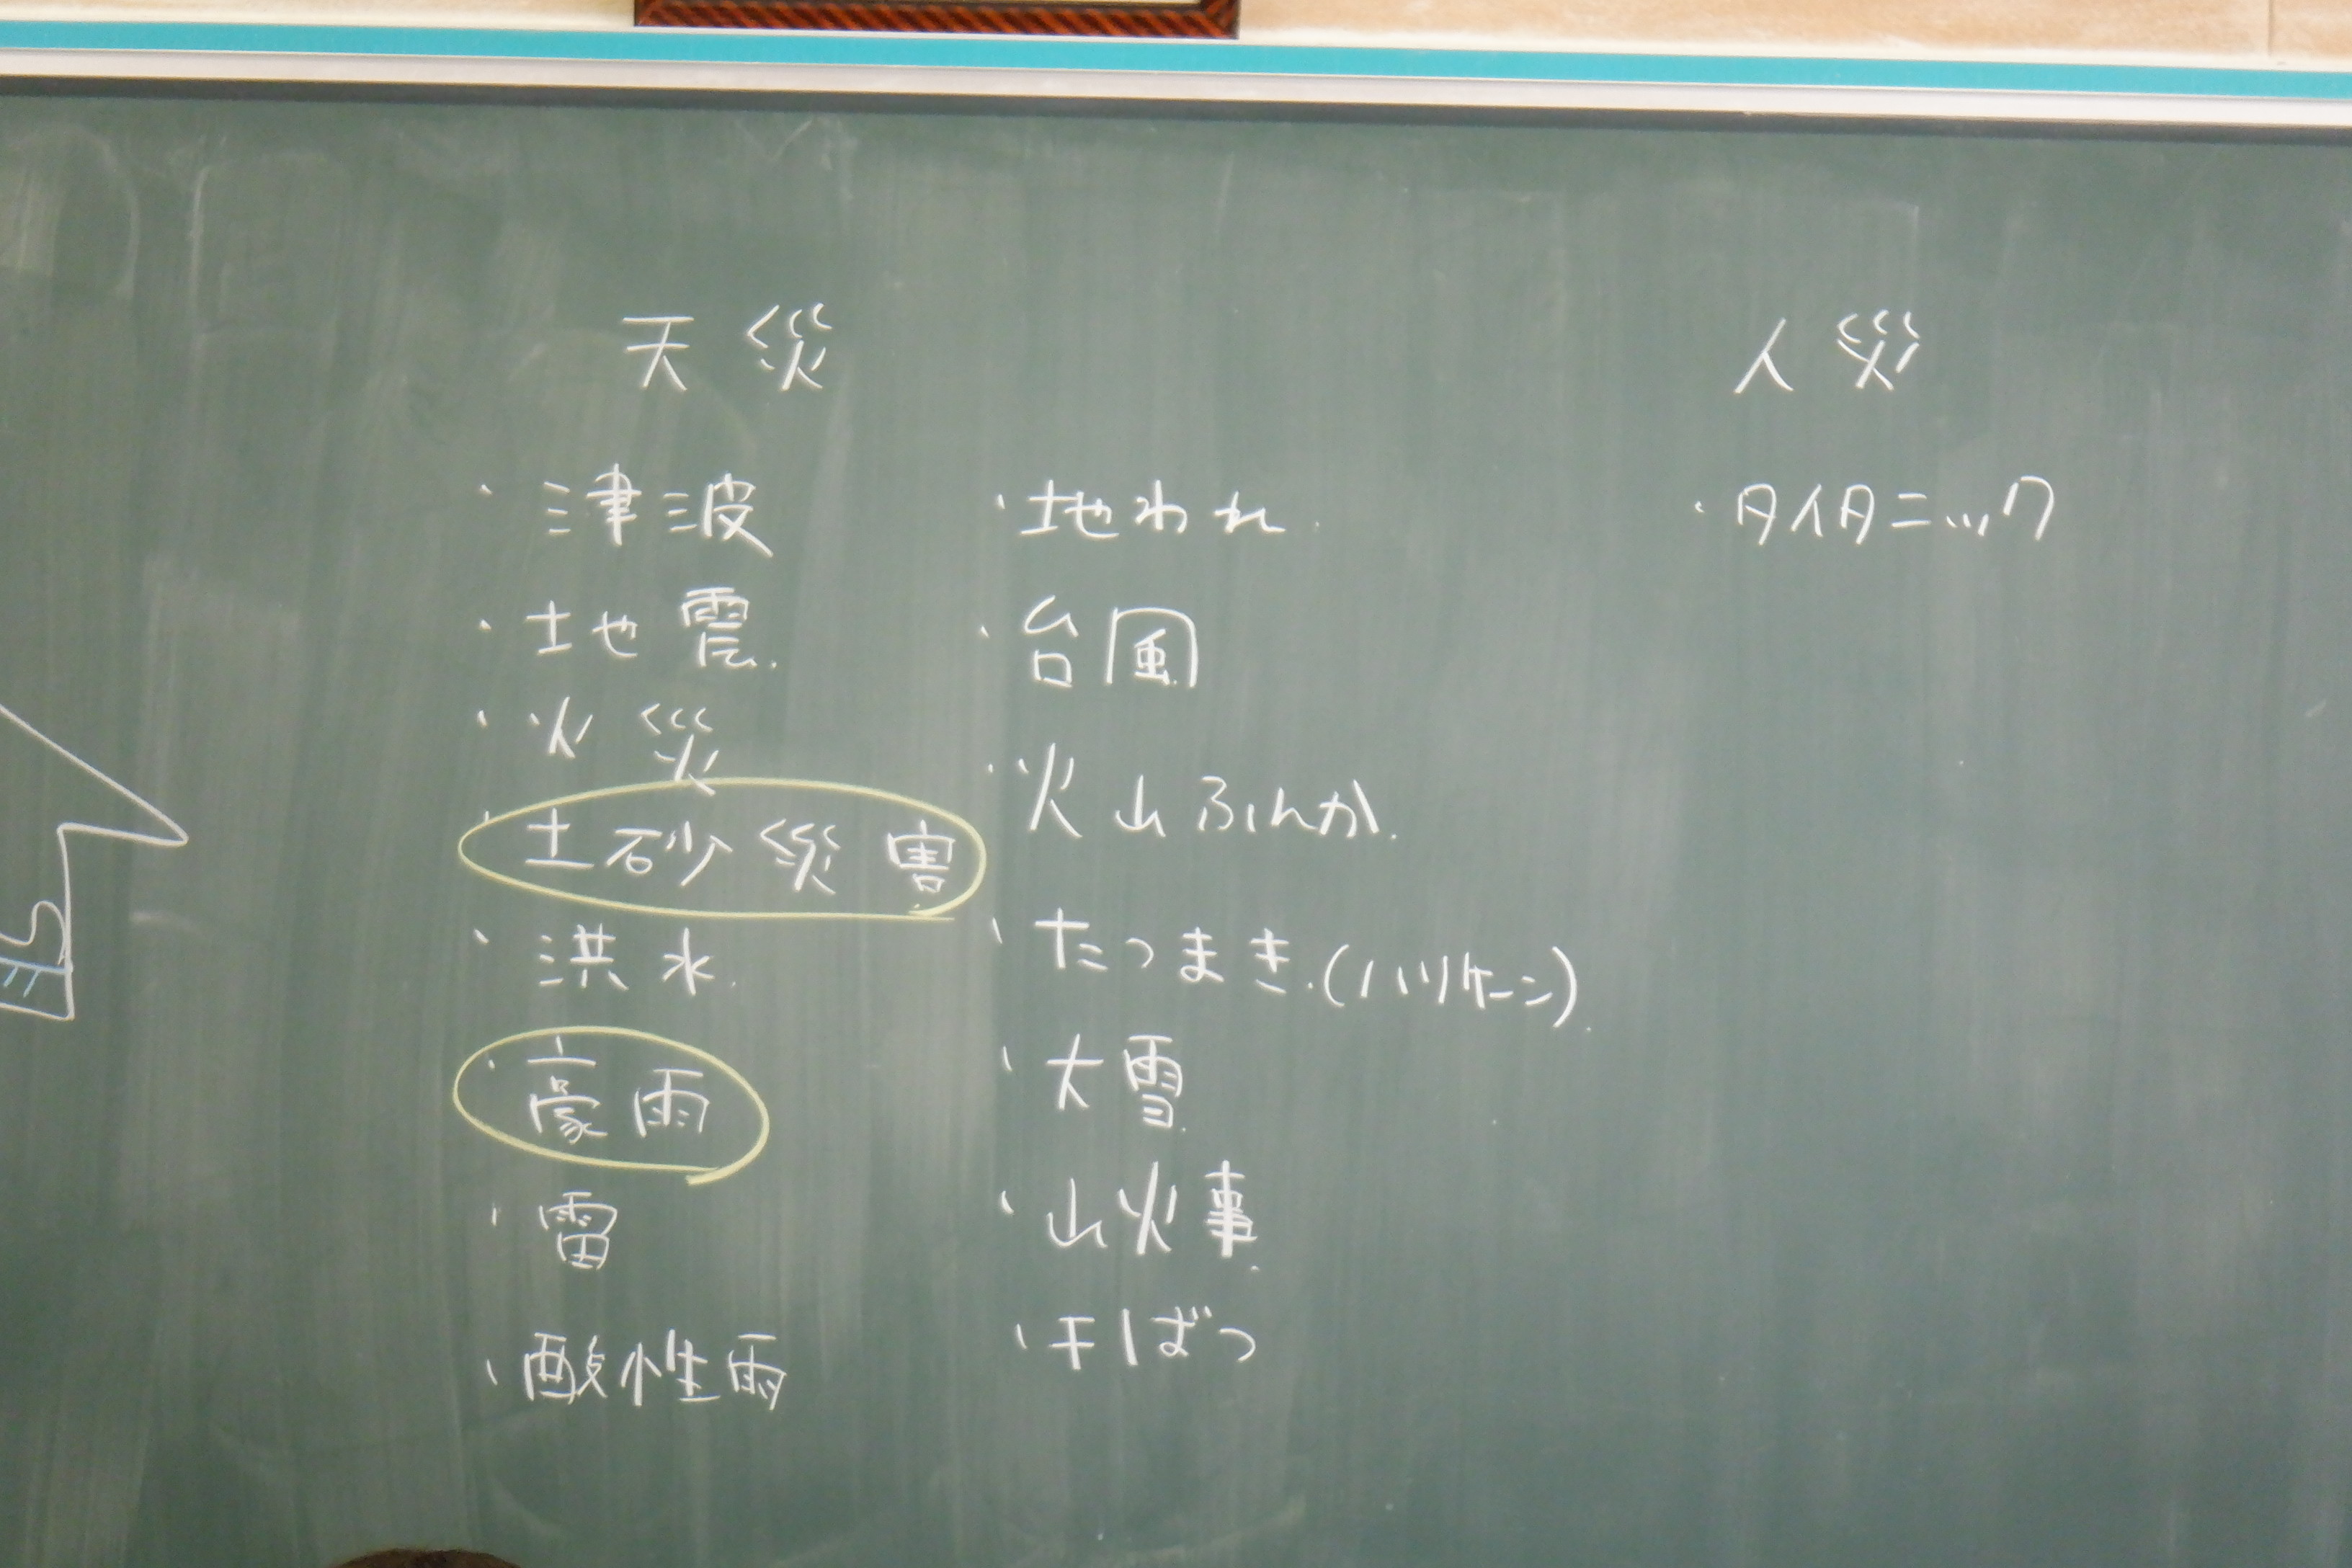 天災
・津波
・地震.
・火災
・土砂災害
・洪水.
・豪雨
・雷
・酸性雨
・地われ.
・台風
・火山ふんか.
・たつまき.(ハリケーン).
・大雪.
・山火事.
・干ばつ
人災
・タイタニック